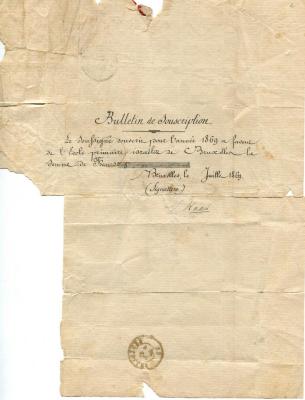 Bulletin de Souscription
Le soussigné souscrit pour l'année 1869 en faveur
de l'école primaire israélite de Bruxelles la
somme de Francs
Bruxelles, le Juillet 1869.
(Signature)